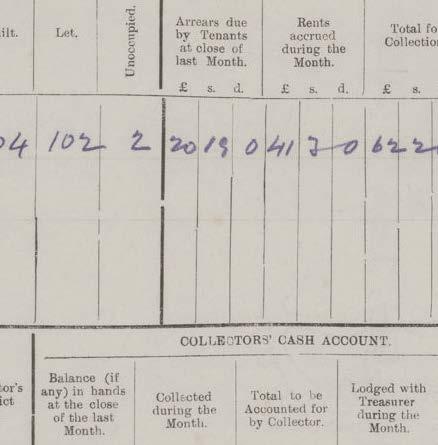 ilt.
Let.
Unoccupied.
Arrears due
by Tenants
at close of
last Month.
Rents
accrued
during the
Month.
Total fo
Collectio
£ s. d. £ s. d. £ s.
04 102 2 20 19 0 41 3 0 62 2
COLLECTORS' CASH ACCOUNT.
tor's
ict
Balance (if
any) in hands
at the close
of the last
Month.
Collected
during the
Month.
Total to be
Accounted for
by Collector.
Lodged with
Treasurer
during the
Month.